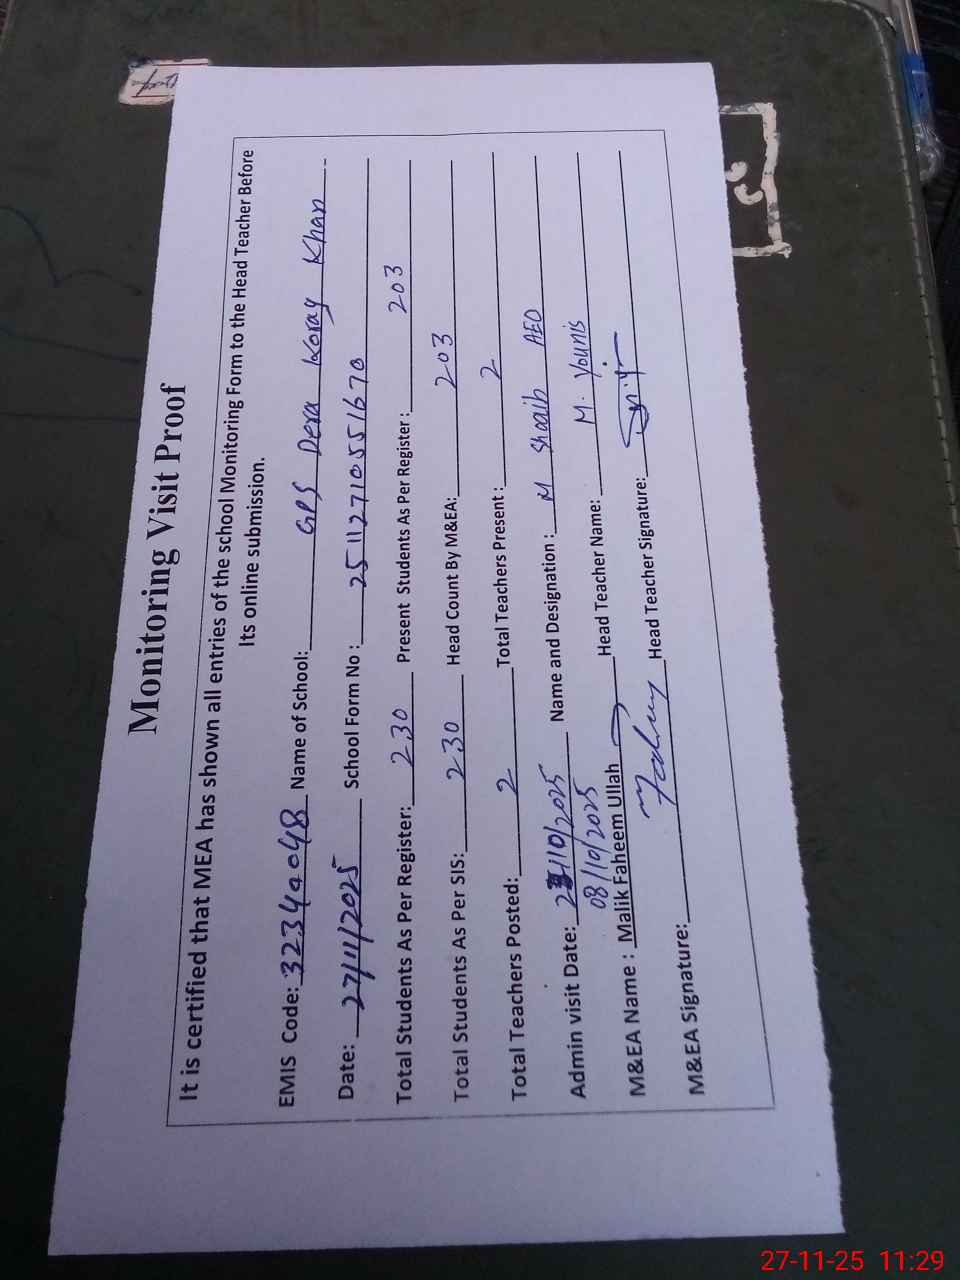 Monitoring Visit Proof
It is certified that MEA has shown all entries of the school Monitoring Form to the Head Teacher Before
Its online submission.
EMIS Code: 32349048 Name of School: GPS Dera Koray Khan
Date: 27/11/2025 School Form No : 251127105551670
Total Students As Per Register: 230 Present Students As Per Register: 203
Total Students As Per SIS: 230 Head Count By M&EA: 203
Total Teachers Posted: 2 Total Teachers Present : 2
Admin visit Date: /10/2025 Name and Designation : M Shoaib AEO
08/10/2025
M&EA Name : Malik Faheem Ullah Head Teacher Name: M. Younis
M&EA Signature: Head Teacher Signature:
27-11-25 11:29